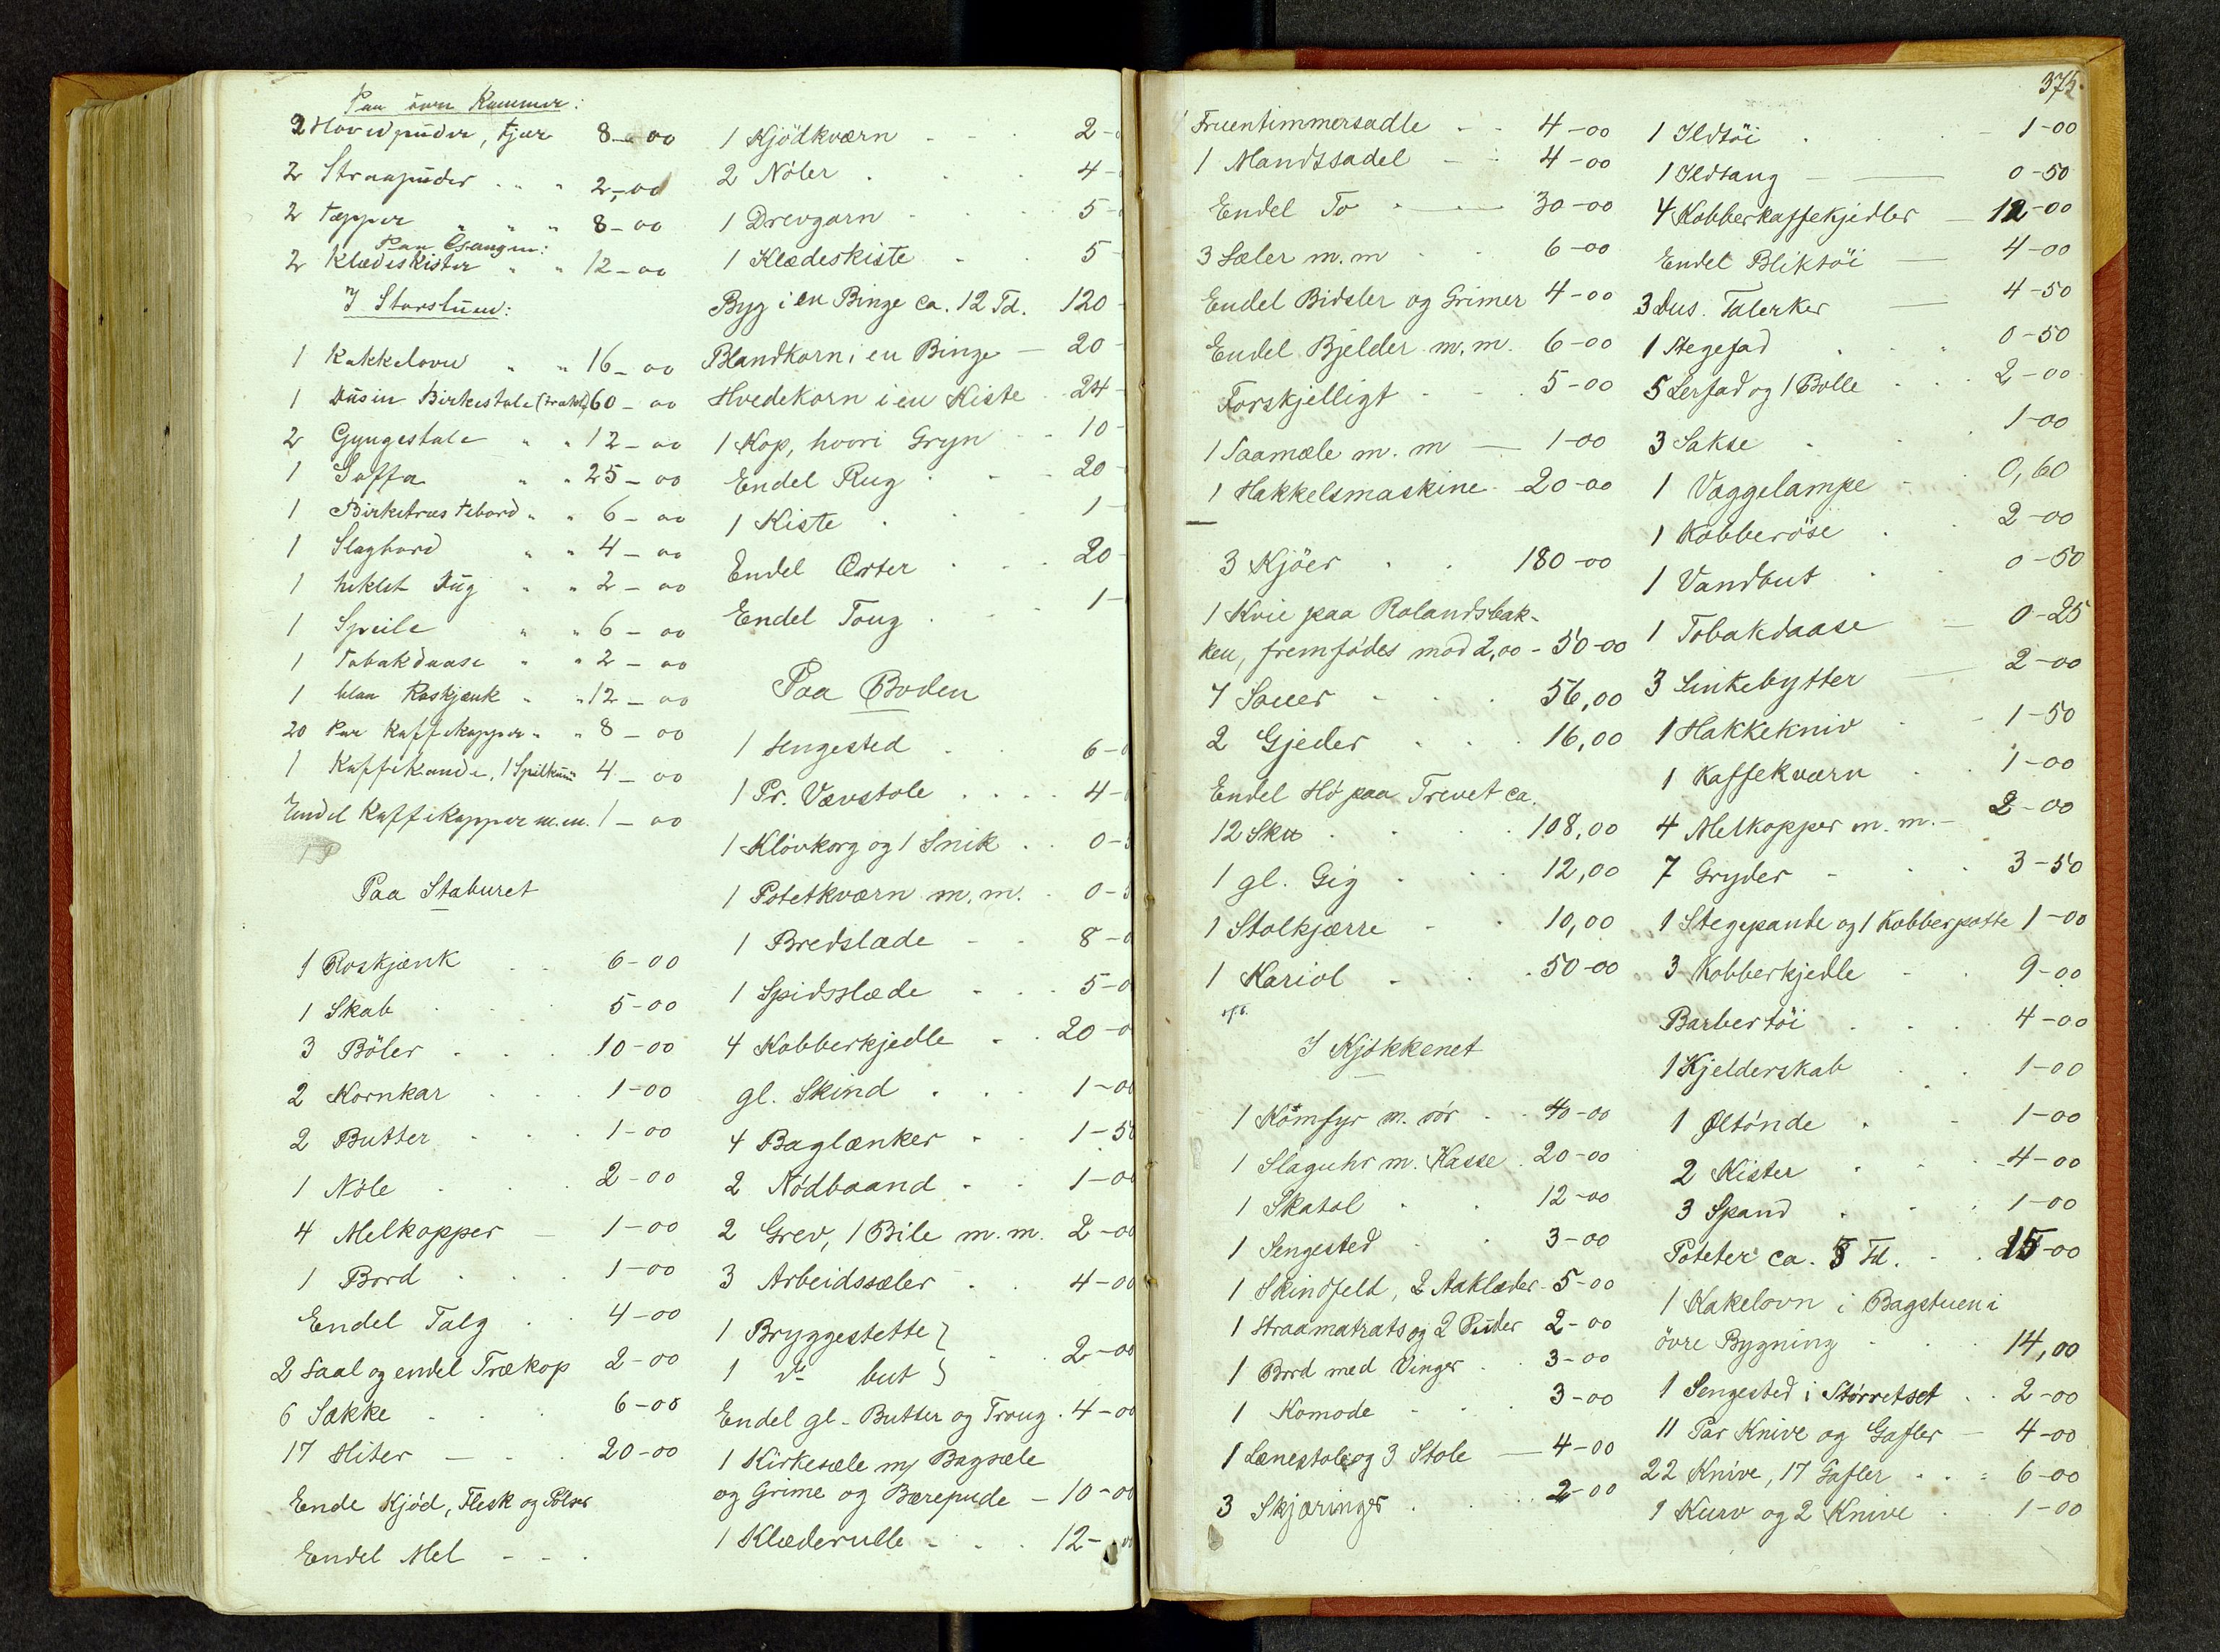 Paa övre Kammer:
2 Hovedpuder, fjær 8-00
2 Straapuder . . . 2,00
2 Tepper " " " 8-00
Paa Gangen:
2 Klædeskister " " 12-00
I Storstuen:
1 Kakkelovn " " 16-00
1 Dusin Birkestole (trukk) 60-00
2 Gyngestole " " 12-00
1 Soffa " " 25-00
1 Birketræs tebord " " 6-00
1 Slagbord " " 4-00
1 heklet Dug " " 2-00
1 Speile " " 6-00
1 Tobakdaase " " 2-00
1 blaa Roskjænk " " 12-00
20 Par Kaffekopper " " 8-00
1 Kaffekande, 1 Spilkum 4-00
Endel Kaffekopper m.m. 1-00
Paa Staburet
1 Roskjænk . . 6-00
1 Skab . . . 5-00
3 Böler . . . 10-00
2 Kornkar . . . 1-00
2 Butter . . . 1-00
1 Nöle . . . 2-00
4 Melkopper - 1-00
1 Bord . . . 1-00
Endel Talg . . 4-00
2 Saal og endel Trækop 2-00
6 Sække . . . 6-00
17 Hiter - . . 20-00
Ende Kjöd, Flesk og Pölser
Endel Mel - - .
1 Kjödkværn - - . 2-
2 Nöler . . . 4-
1 Drevgarn . . . 5-
1 Klædeskiste . . 5
Byg i en Binge ca. 12 Td. 120
Blandkorn i en Binge - 20
Hvedekorn i en Kiste . 24
1 Kop, hvori Gryn - - 10
Endel Rug . . - 20
1 Kiste . . . 1-
Endel Erter . . . 20
Endel Toug . . . 1-
Paa Boden
1 Sengested . . 6-
1 Pr. Vævstole . . . . 4-
1 Klövkorg og 1 Snik . . 0-
1 Potetkværn m.m. . 0-
1 Bredslæde - - 8-
1 Spidsslæde - . . 5-
4 Kobberkjedle . . 20-
gl. Skind . . . 1-00
4 Baglænker . . 1-50
2 Nödbaand . . 1-00
2 Grev, 1 Bile m.m. 2-00
3 Arbeidssæler . . 4-00
1 Bryggestette }
1 do but } . . 2-00
Endel gl. Butter og Troug . 4-00
1 Kirkesæle m/ Bagsæle
og Grime og Bærepude - 10-00
1 Klæderulle - . . 12-00
375.
1 Fruentimmersadle - - 4-00
1 Mandssadel - - 4-00
Endel To . - 30-00
3 Sæler m.m . . 6-00
Endel Bidsler og Grimer 4-00
Endel Bjelder m.m. 6-00
Forskjelligt - . . 5-00
1 Saamæle m.m - 1-00
1 Hakkelsmaskine . 20-00
3 Kjöer . . 180-00
1 Kvie paa Rolandsbak-
ken, fremfödes mod 2,00 - 50-00
7 Sauer . . . 56,00
2 Gjeder . . . 16,00
Endel Hö paa Trevet ca.
12 Sk# . . . . 108,00
1 gl. Gig . . . 12,00
1 Stolkjærre - . 10,00
1 Kariol - . . . 50-00
I Kjökkenet
1 Komfyr m. rör . . 40-00
1 Slaguhr m. Kasse . 20-00
1 Skatol . . 12-00
1 Sengested . . 3-00
1 Skindfeld, 2 Aaklæder . 5-00
1 Straamatrats og 2 Puder 2-00
1 Bord med Vinger . . 3-00
1 Komode - . . 3-00
1 Lænestole og 3 Stole - 4-00
3 Skjæringer . . . 2-00
1 Ildtöi . . . - 1-00
1 Ildtang - - 0-50
4 Kobberkaffekjedler - 12-00
Endel Bliktöi - 4-00
3 Dus. Talerker - 4-50
1 Stegefad . . . 0-50
5 Lerfad og 1 Bolle . . . 2-00
3 Sakse . . . 1-00
1 Væggelampe - . 0,60
1 Kobberöse . . 2-00
1 Vandbut . . 0-50
1 Tobakdaase - 0-25
3 Sinkebytter - 2-00
1 Hakkekniv . - 1-50
1 Kaffekværn . . 1-00
4 Melkopper m.m. - 2-00
7 Gryder - . . 3-50
1 Stegepande og 1 Kobberpotte 1-00
3 Kobberkjedle . . 9-00
Barbertöi . . . 4-00
1 Kjelderskab . . 1-00
1 Öltönde . - 1-00
2 Kister . . - 4-00
3 Spand . . . 1-00
Poteter ca. 5 Td. . . 15-00
1 Kakelovn i Bagstuen i
övre Bygning . . . 14,00
1 Sengested i Störretset . . 2-00
11 Par Knive og Gafler - 4-00
22 Knive, 17 Gafler . . . 6-00
1 Kurv og 2 Knive . . 1-00